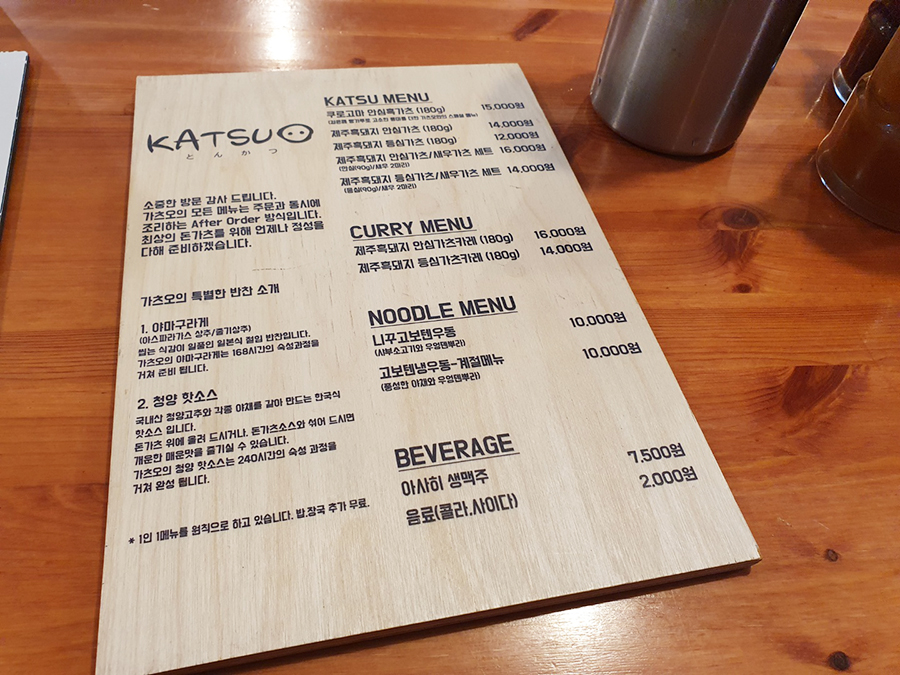 KATSUO
とんかつ
소중한 방문 감사 드립니다.
가츠오의 모든 메뉴는 주문과 동시에
조리하는 After Order 방식입니다.
최상의 돈가츠를 위해 언제나 정성을
다해 준비하겠습니다.
가츠오의 특별한 반찬 소개
1. 야마구라게
(아스파라가스 상추/줄기상추)
씹는 식감이 일품인 일본식 절임 반찬입니다.
가츠오의 야마구라게는 168시간의 숙성과정을
거쳐 준비 됩니다.
2. 청양 핫소스
국내산 청양고추와 각종 야채를 갈아 만든 한국식
핫소스 입니다.
돈가츠 위에 올려 드시거나, 돈가츠소스와 섞어 드시면
개운한 매운맛을 즐기실 수 있습니다.
가츠오의 청양 핫소스는 240시간의 숙성 과정을
거쳐 완성 됩니다.
* 1인 1메뉴를 원칙으로 하고 있습니다. 밥.장국 추가 무료.
KATSU MENU
쿠로고마 안심흑가츠 (180g) 15,000원
제주흑돼지 안심가츠 (180g) 14,000원
제주흑돼지 등심가츠 (180g) 12,000원
제주흑돼지 안심가츠/새우가츠 세트 16,000원
(안심(90g)/새우 2마리)
제주흑돼지 등심가츠/새우가츠 세트 14,000원
(등심(90g)/새우 2마리)
CURRY MENU
제주흑돼지 안심가츠카레 (180g) 16,000원
제주흑돼지 등심가츠카레 (180g) 14,000원
NOODLE MENU
니꾸고보텐우동 10,000원
(샤부소고기와 우엉덴뿌라)
고보텐냉우동-계절메뉴 10,000원
(풍성한 야채와 우엉덴뿌라)
BEVERAGE
아사히 생맥주 7,500원
음료(콜라,사이다) 2,000원